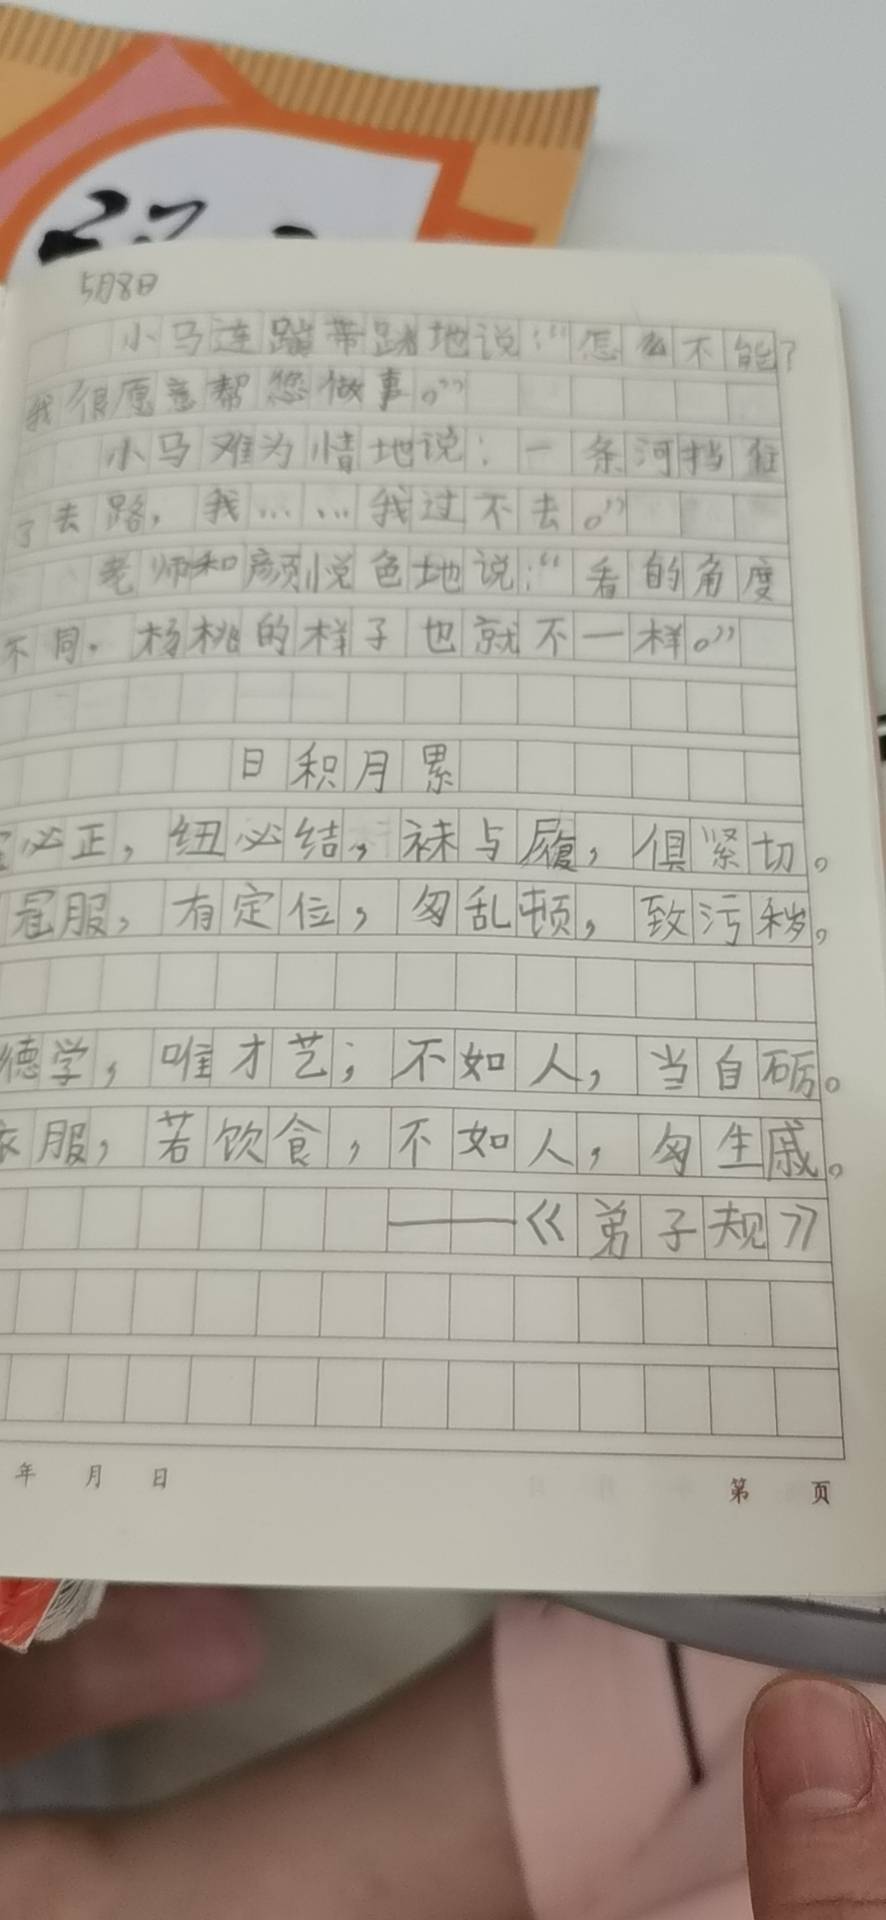 5月8日
小马连蹦带跳地说:“怎么不能?
我很愿意帮您做事。”
小马难为情地说:一条河挡住
了去路,我……我过不去。”
老师和颜悦色地说:“看的角度
不同,杨桃的样子也就不一样。”
日积月累
必正,纽必结,袜与履,俱紧切。
冠服,有定位,匆乱顿,致污秽。
德学,唯才艺;不如人,当自砺。
衣服,若饮食,不如人,匆生戚。
——《弟子规》
年 月 日 第 页